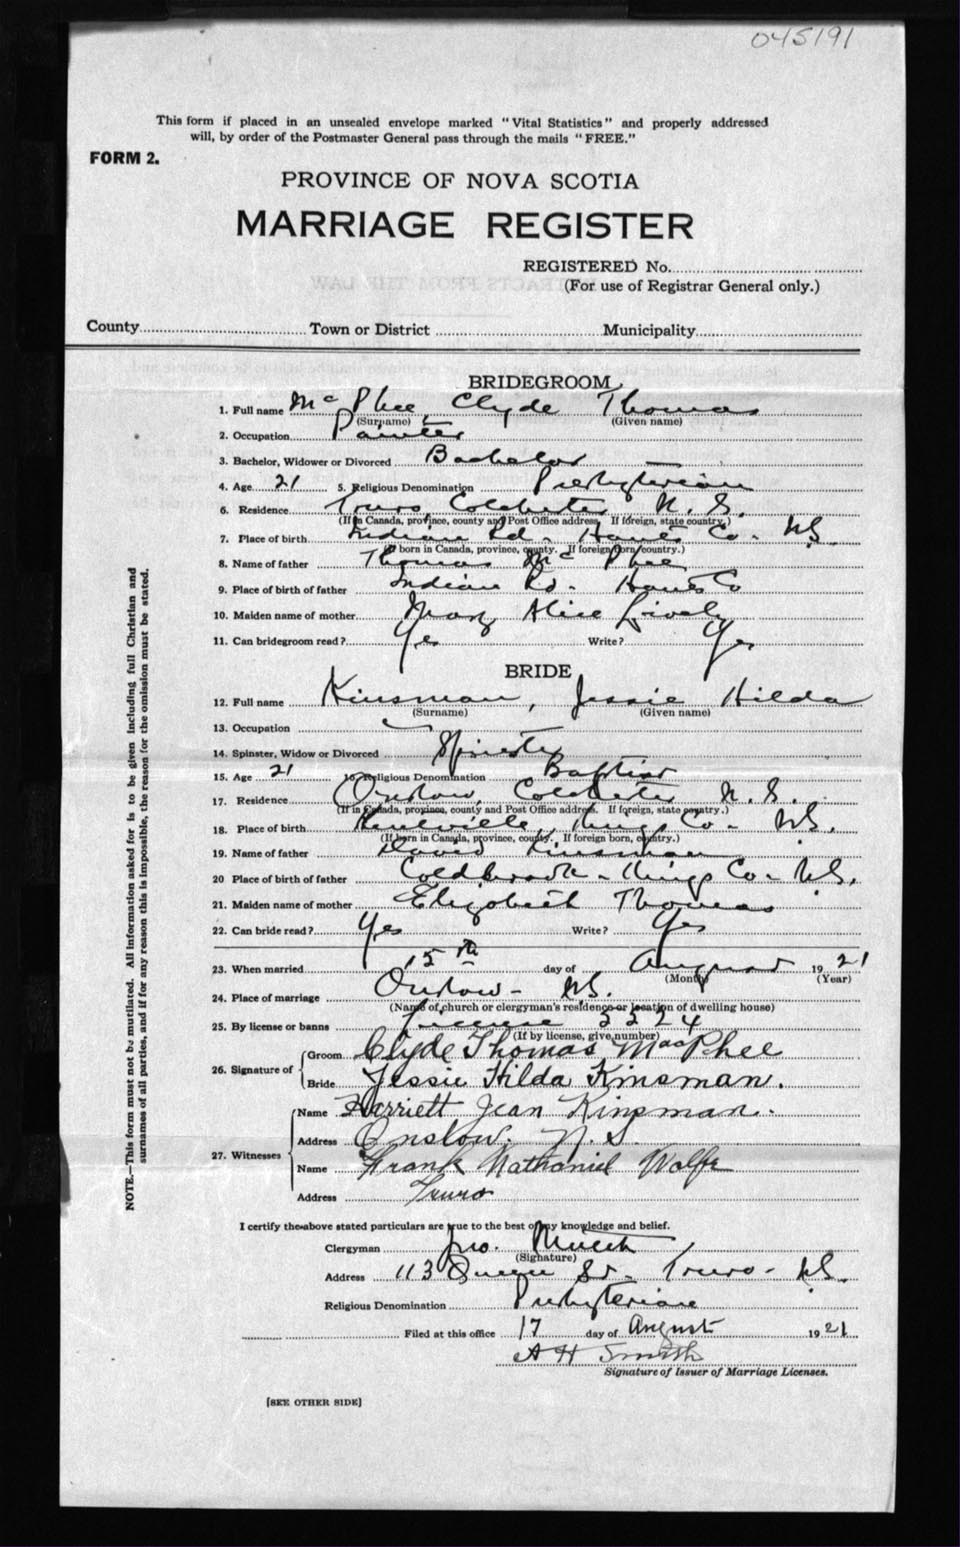 045191
This form if placed in an unsealed envelope marked "Vital Statistics" and properly addressed
will, by order of the Postmaster General pass through the mails "FREE."
FORM 2.
PROVINCE OF NOVA SCOTIA
MARRIAGE REGISTER
REGISTERED No.
(For use of Registrar General only.)
County Town or District Municipality
BRIDEGROOM
1. Full name McPhee, Clyde Thomas
(Surname) (Given name)
2. Occupation Painter
3. Bachelor, Widower or Divorced Bachelor
4. Age 21 5. Religious Denomination Presbyterian
6. Residence Truro, Colchester N. S.
(If in Canada, province, county and Post Office address. If foreign, state country.)
7. Place of birth Indian Rd. Hants Co. N.S.
(If born in Canada, province, county. If foreign born, country.)
8. Name of father Thomas McPhee
9. Place of birth of father Indian Rd. Hants Co
10. Maiden name of mother Mary Alice Lively
11. Can bridegroom read? Yes Write? Yes
BRIDE
12. Full name Kinsman, Jessie Hilda
(Surname) (Given name)
13. Occupation
14. Spinster, Widow or Divorced Spinster
15. Age 21 16. Religious Denomination Baptist
17. Residence Onslow, Colchester N. S.
(If in Canada, province, county and Post Office address. If foreign, state country.)
18. Place of birth Kentville Kings Co. N.S.
(If born in Canada, province, county. If foreign born, country.)
19. Name of father David Kinsman
20 Place of birth of father Coldbrook - Kings Co - N.S.
21. Maiden name of mother Elizabeth Thomas
22. Can bride read? Yes Write? Yes
23. When married 15th day of August 1921
(Month) (Year)
24. Place of marriage Onslow - N.S.
(Name of church or clergyman's residence or location of dwelling house)
25. By license or banns License 3324
(If by license, give number)
26. Signature of Groom Clyde Thomas MacPhee
Bride Jessie Hilda Kinsman.
27. Witnesses Name Harriett Jean Kinsman.
Address Onslow. N. S.
Name Frank Nathaniel Wolfe
Address Truro
I certify the above stated particulars are true to the best of my knowledge and belief.
Clergyman Jno.
(Signature)
Address 113 Queen St. Truro - N.S.
Religious Denomination Presbyterian
Filed at this office 17 day of August 1921
A H Smith
Signature of Issuer of Marriage Licenses.
[SEE OTHER SIDE]
NOTE.—This form must not be mutilated. All information asked for is to be given including full Christian and
surnames of all parties, and if for any reason this is impossible, the reason for the omission must be stated.